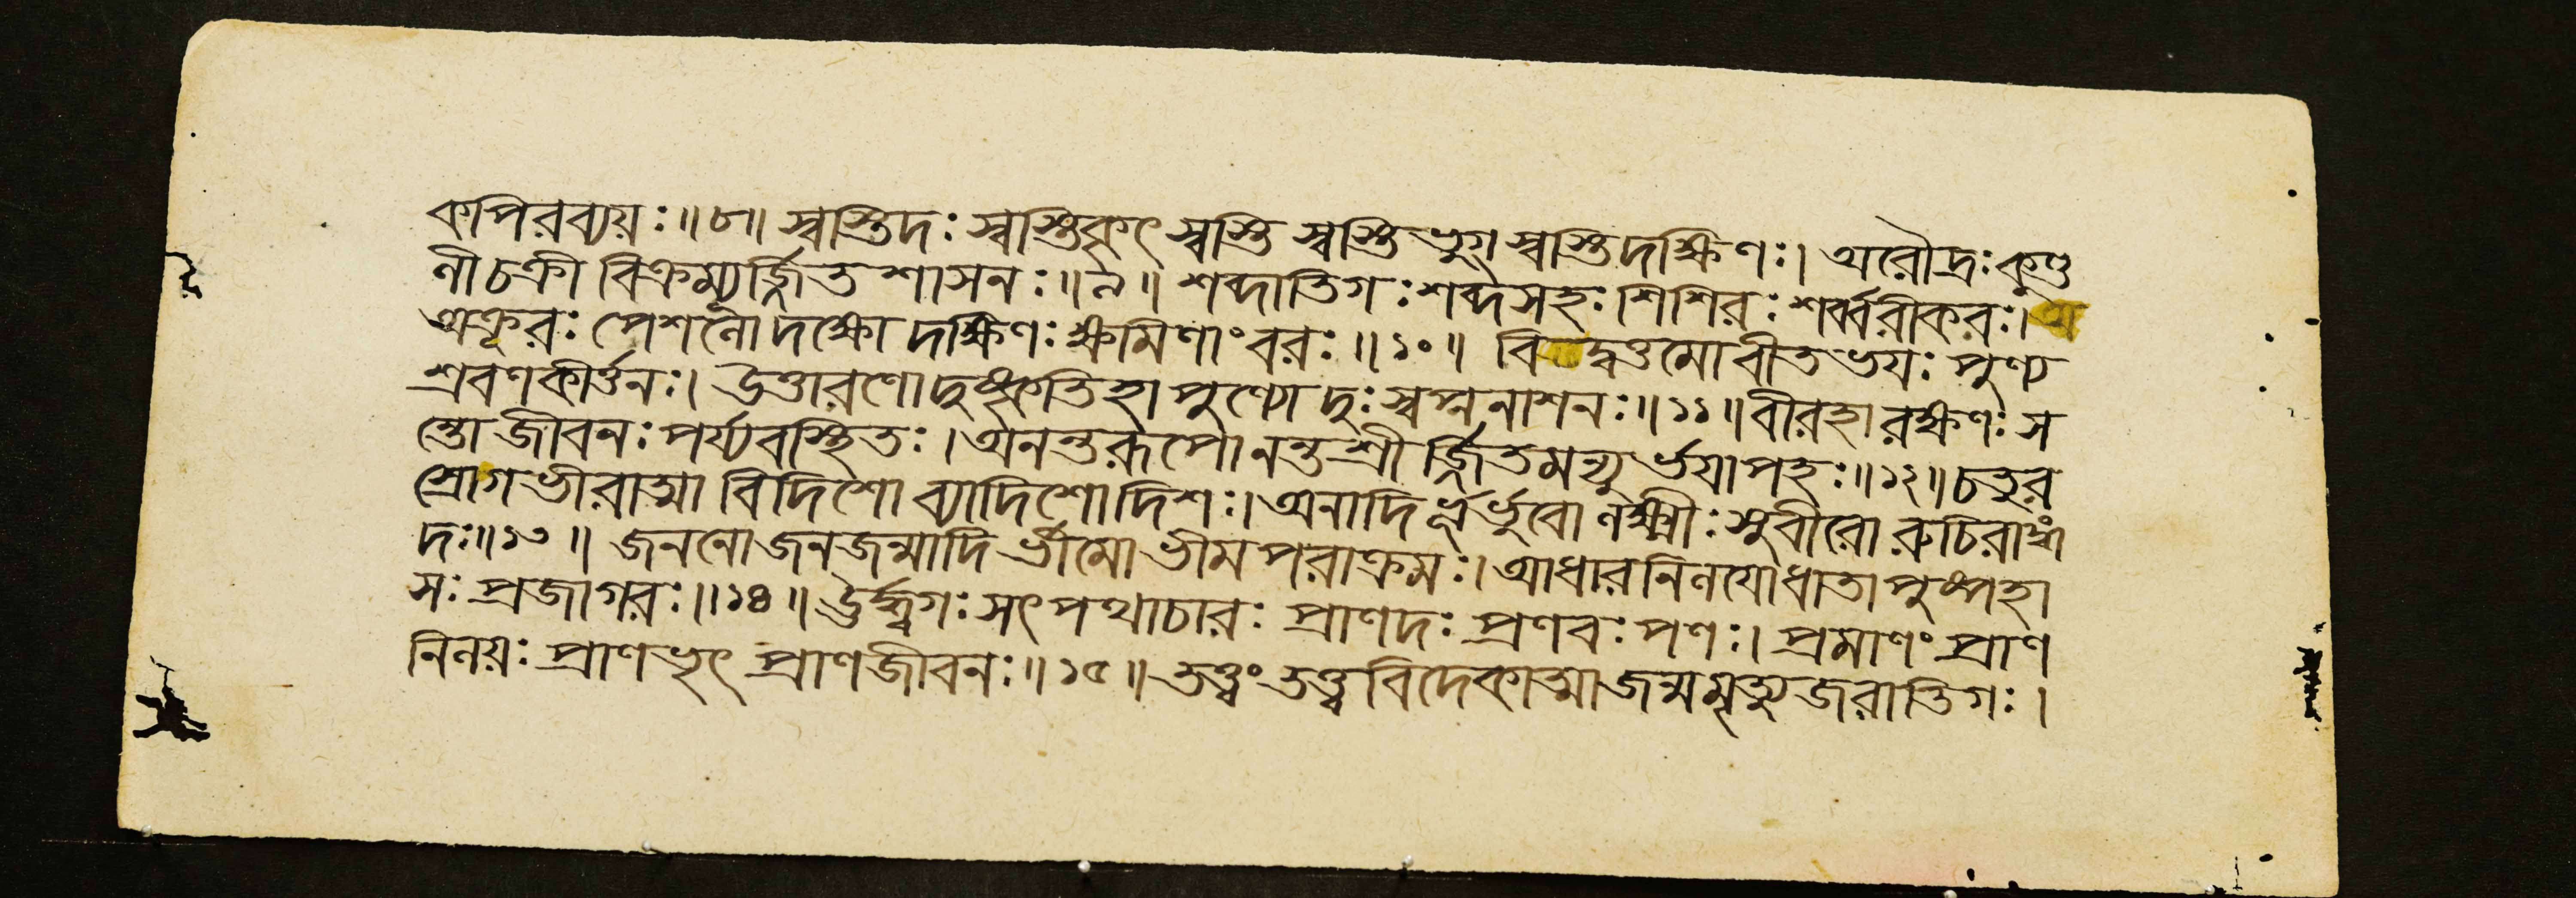 কপিরব্যয়ঃ॥৮॥ স্বস্তিদঃ স্বস্তিকৃৎ স্বস্তি স্বস্তিভুগ্ স্বস্তিদক্ষিণঃ। অরৌদ্রঃ কুণ্ড
লীচক্রী বিক্রম্যূর্জ্জিত শাসনঃ॥৯॥ শব্দাতিগঃ শব্দসহঃ শিশিরঃ শর্ব্বরীকরঃ। অ
অক্রূরঃ পেশলো দক্ষো দক্ষিণঃ ক্ষমিণাংবরঃ॥১০॥ বিদ্বত্তমো বীতভয়ঃ পুণ্য
শ্রবণকীর্ত্তনঃ। উত্তারণো দুষ্কৃতিহা পুণ্যো দুঃস্বপ্ননাশনঃ॥১১॥ বীরহা রক্ষণঃ স
ন্তো জীবনঃ পর্য্যবস্থিতঃ। অনন্তরূপোনন্তশ্রী র্জ্জিতমন্যু র্ভয়াপহঃ॥১২॥ চতুর
স্রোগভীরাত্মা বিদিশো ব্যাদিশোদিশঃ। অনাদি র্ভূর্ভুবো লক্ষ্মীঃ সুবীরো রুচিরাঙ্গ
দঃ॥১৩॥ জননো জনজন্মাদি র্ভীমো ভীমপরাক্রমঃ। আধারনিলয়োধাতা পুষ্পহা
সঃ প্রজাগরঃ॥১৪॥ ঊর্দ্ধ্বগঃ সৎপথাচারঃ প্রাণদঃ প্রণবঃ পণঃ। প্রমাণং প্রাণ
নিলয়ঃ প্রাণভৃৎ প্রাণজীবনঃ॥১৫॥ তত্ত্বং তত্ত্ববিদেকাত্মা জন্মমৃত্যুজরাতিগঃ।